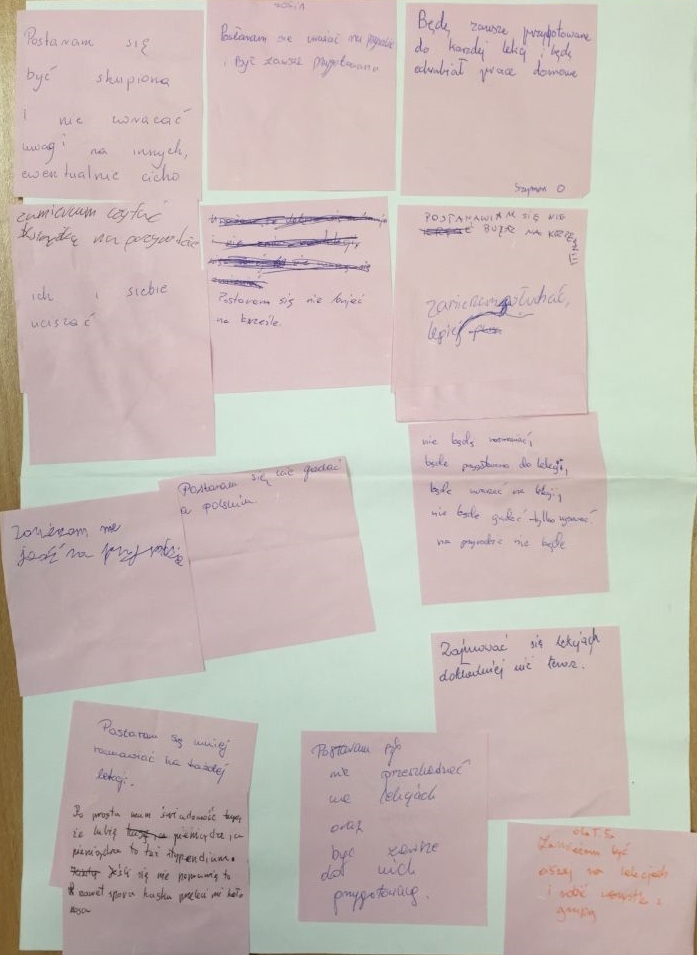 Postaram się
być skupiona
i nie zwracać
uwagi na innych,
ewentualnie cicho
ZOSIA
Postaram się uważać na
i Być zawsze przygotowana
Będę zawsze przygotowane
do każdej lekcji będę
odrabiał prace domowe
Szymon O
zamierzam czytać
książkę na przyrodzie
ich i siebie
uciszać
Postaram się nie bujać
na krześle.
POSTANAWIAM SIĘ NIE
BUJAĆ NA KRZEŚLE
zamierzam słuchać,
lepiej
nie będę rozmawiać,
będe przygotowana do lekcji,
będe uważać na lekcji,
nie będe gadać tylko uważać
na przyrodzie nie będę
Postaram się nie gadać
a polskim.
Zamierzam nie
jeść na przyrodzie
Zajmować się lekcjach
dokładniej niż teraz.
Postaram się mniej
rozmawiać na każdej
lekcji.
Po prostu mam świadomość
że lubię pieniądze, a
pieniądze to też stypendium.
Jeśli się nie poprawię to
nawet spora kaska przeleci mi koło
nosa
Postaram się
nie przeszkadzać
na lekcjach
oraz
być zawsze
do nich
przygotowany.
Zamierzam być
ciszej na lekcjach
i robić